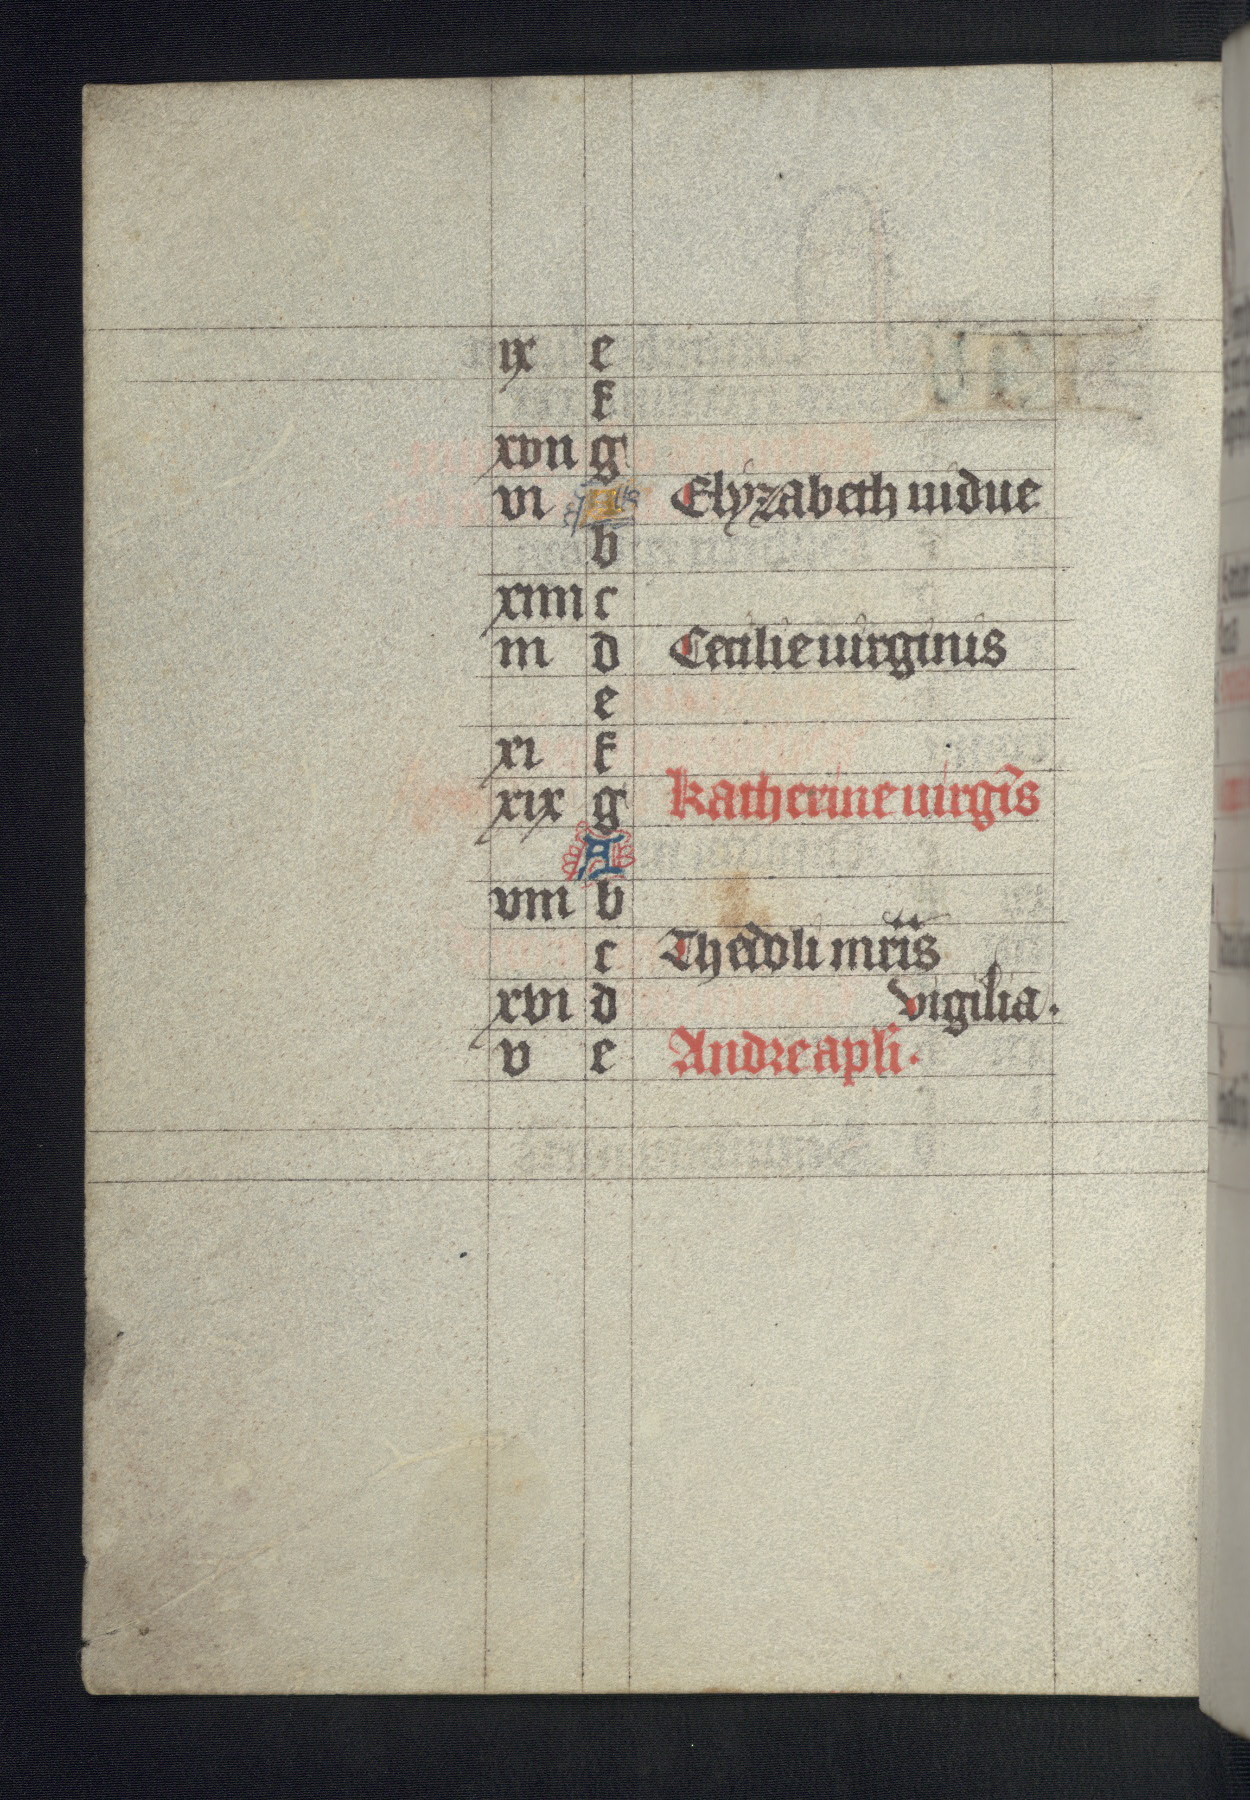 ix e
f
xvii g
vi A Elyzabeth uidue
b
xiiii c
iii d Cecilie uirginis
e
xi f
xix g Katherine uirgĩs
A
viii b
c Theoli mr̃is
xvi d vigilia.
v e Andree apl̃i.